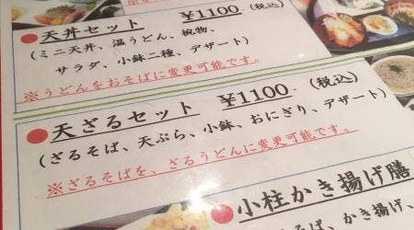 ●天丼セット ¥1100(税込)
(ミニ天丼、温うどん、椀物、
サラダ、小鉢二種、デザート)
※うどんをおそばに変更可能です。
●天ざるセット ¥1100(税込)
(ざるそば、天ぷら、小鉢、おにぎり、デザート)
※ざるそばを、ざるうどんに変更可能です。
●小柱かき揚げ膳
そば、かき揚げ、